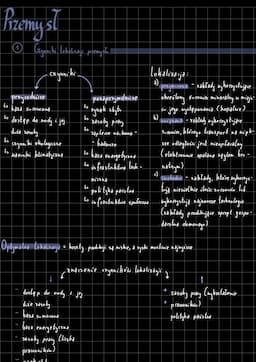 Przemysł
① Czynniki lokalizacji przemysłu
czynniki
przyrodnicze
↳ baza surowcowa
↳ dostęp do wody i jej
duże zasoby
↳ czynniki ekologiczne
↳ warunki klimatyczne
pozaprzyrodnicze
↳ rynek zbytu
↳ zasoby pracy
↳ zaplecze naukowo-
badawcze
↳ baza energetyczna
↳ infrastruktura tech-
niczna
↳ polityka państwa
↳ infrastruktura społeczna
Lokalizacja:
a) przymusowa - zakłady wykorzystujące
określony surowiec mineralny w miejs-
cu jego występowania (kopalnie)
b) związana - zakłady wykorzystujące
surowiec, którego transport na więk-
sze odległości jest nieopłacalny
(elektrownie opalane węglem bru-
natnym)
c) swobodna - zakłady, które wykorzys-
tują niewielkie ilości surowców lub
wykorzystują najnowsze technologie
(zakłady produkujące sprzęt gospo-
darstwa domowego)
Optymalna lokalizacja - koszty produkcji są niskie, a zyski możliwie najwyższe
znaczenie czynników lokalizacji
- dostęp do wody i jej
duże zasoby
- baza surowcowa
- baza energetyczna
- zasoby pracy (liczba
pracowników)
+ zasoby pracy (wykształcenie
pracowników)
polityka państwa